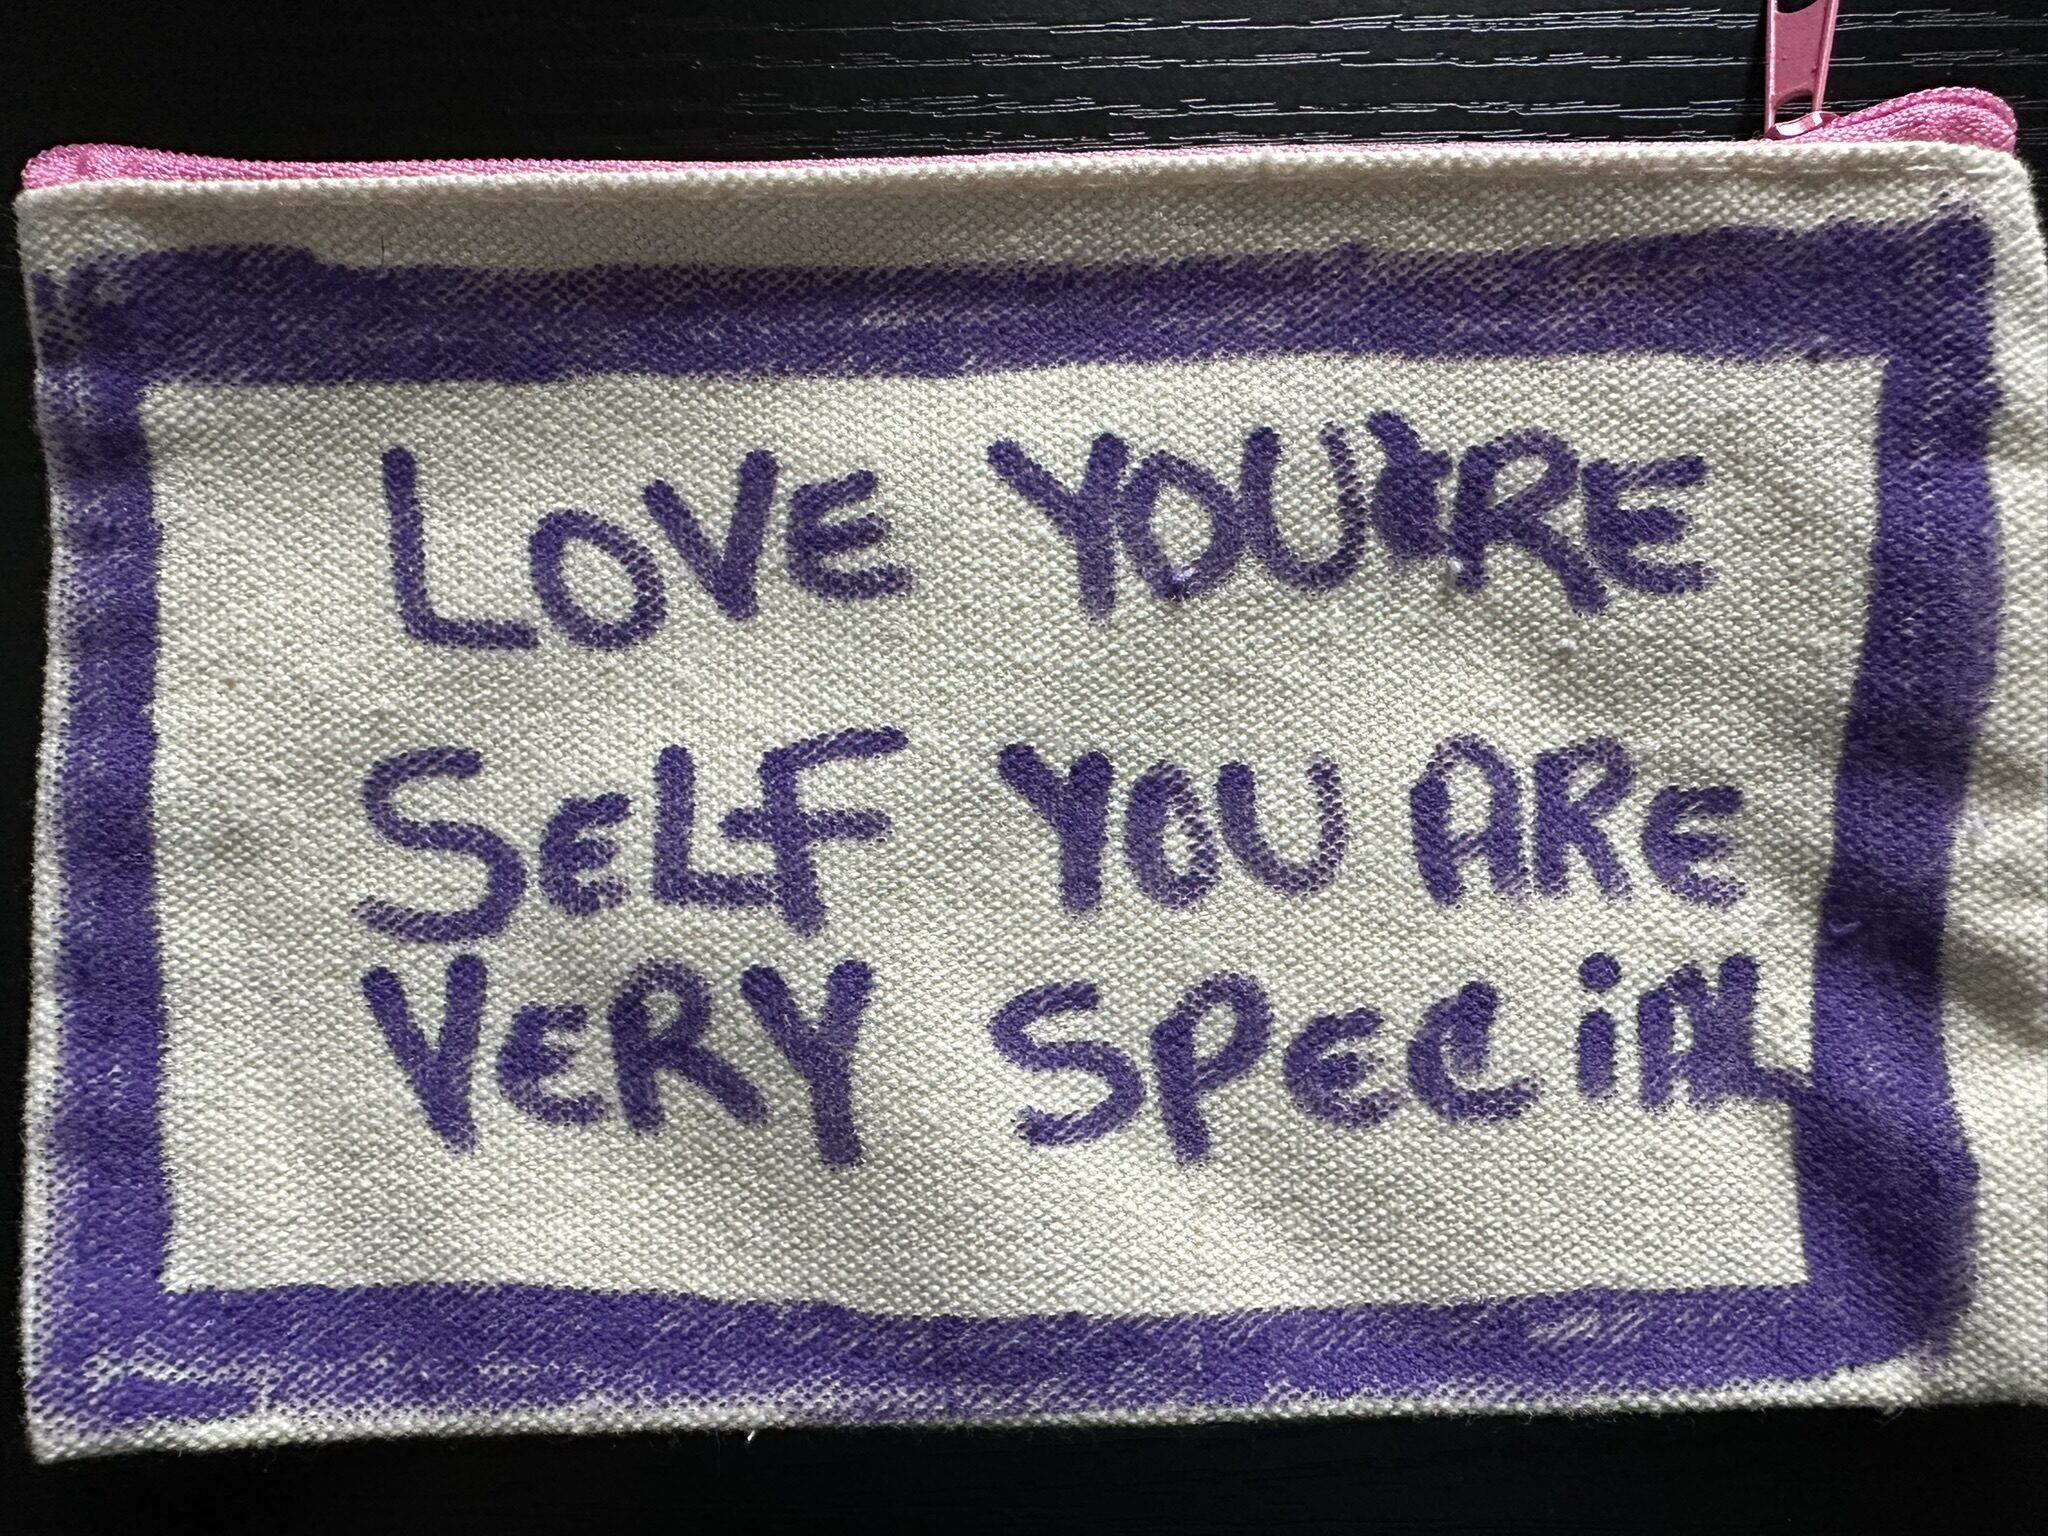 LOVE YOU'RE
SELF YOU ARE
VERY SPECiAL